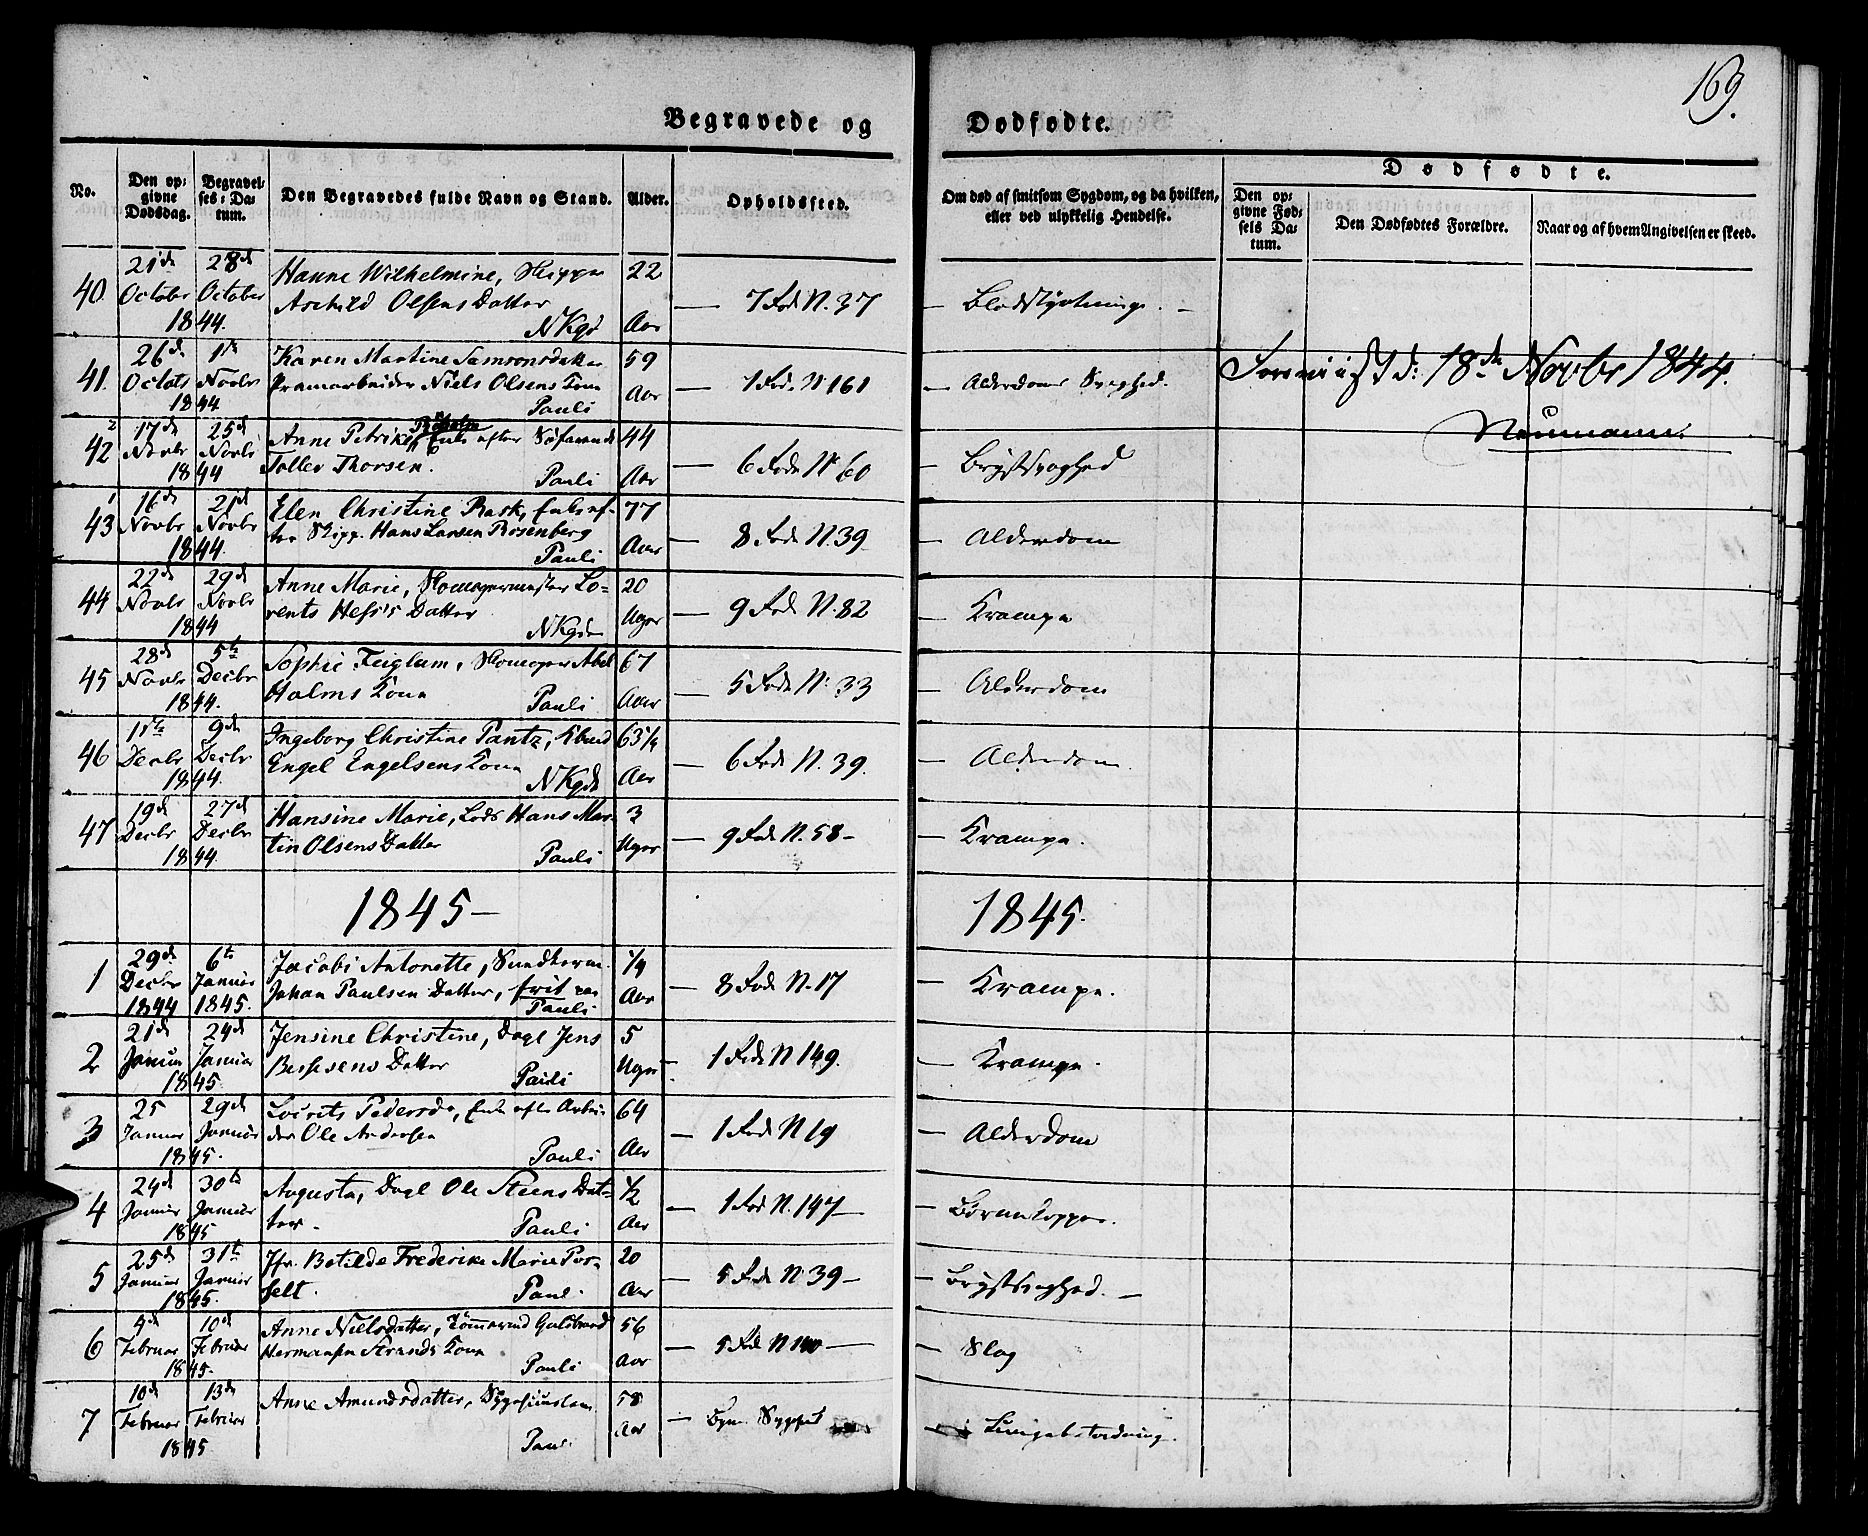 169.
Begravede og Dødfødte.
No.
Den opgivne Dødsdag.
Begravelses-Datum.
Den Begravedes fulde Navn og Stand.
Alder.
Opholdssted.
Om død af smitsom Sygdom, og da hvilken, eller ved ulykkelig Hendelse.
Dødfødte.
Den opgivne Fødsels Datum.
Den Dødfødtes Forældre.
Naar og af hvem Angivelsen er skeed.
40 21de October 28de October 1844.
Hanne Wilhelmine, Skipper
Aschild Olsens Datter
NKgd
22 Aar
— 7 Rode N. 37
— Blodstyrtning. —
41. 26de Octobr 1ste Novbr 1844
Karen Martine Samsonsdatter
Pramarbeider Niels Olsens Kone
Pauli
59 Aar
— 1 Rode N 161
— Alderdoms Svaghed.
d: 18de Novbr 1844.
Neumann.
42 17de Novbr 25de Novbr 1844
Anne Petrike Enke efter Søfarende
Toller Thorsen.
Pauli
44 Aar
— 6 Rode N. 60
— Brystsvaghed
43 16de Novbr 21de Novbr 1844.
Elen Christine Rask, Enke ef-
ter Skipp. Hans Larsen Rosenberg
Pauli
77 Aar
— 8 Rode N. 39
— Alderdom
44 22de Novbr 29de Novbr 1844
Anne Marie, Skomagermester Lo-
rents Hess's Datter
NKgd
20 Uger
— 9 Rode N. 82
— Krampe
45 28de Novbr 5te Decbr 1844.
Sophie Feiglum, Skomager Abel
Holms Kone
Pauli
67 Aar
— 5 Rode N. 33
— Alderdom
46 11te Decbr 9de Decbr 1844.
Ingeborg Christine Pantz,
Engel Engelsens Kone
NKgd
63 1/4 Aar
— 6 Rode N. 39.
— Alderdom.
47 19de Decbr 27de Decbr 1844.
Hansine Marie, Lods Hans Mar-
tin Olsens Datter
Pauli
3 Uger
— 9 Rode N. 58 —
— Krampe.
1845 —
1845.
1 29de Decbr 1844 6te Januar 1845.
Jacobi Antonette,
Johan Paulsen Datter, frit
Pauli
1/4 Aar
— 8 Rode N. 17
— Krampe.
2 21de Januar 24de Januar 1845.
Jensine Christine, Dagl Jens
Bessesens Datter
Pauli
5 Uger
— 1 Rode N 149.
— Krampe.
3 25 Januar 29de Januar 1845.
Pedersd., Enke efter Arbei-
der Ole Andersen
Pauli
64 Aar
— 1 Rode N 19
— Alderdom
4 24de Januar 30te Januar 1845
Augusta, Dagl Ole Steens Dat-
ter.
Pauli
1/2 Aar
— 1 Rode N. 147 —
— Børnekopper.
5 25de Januar 31te Januar 1845.
Jfr. Botilde Frederike Marie Por-
selt.
Pauli
20 Aar
— 5 Rode N. 39 —
— Brystsvaghed. —
6 4de Februar 10de Februar 1845.
Anne Nielsdatter,
Hermansen Strands Kone
Pauli
56 Aar
— 5 Rode N 140 —
— Slag
7 10de Februar 13de Februar 1845
Anne Amundsdatter,
Pauli
58 Aar
— Byens Sygehus
— Lungebetændning.